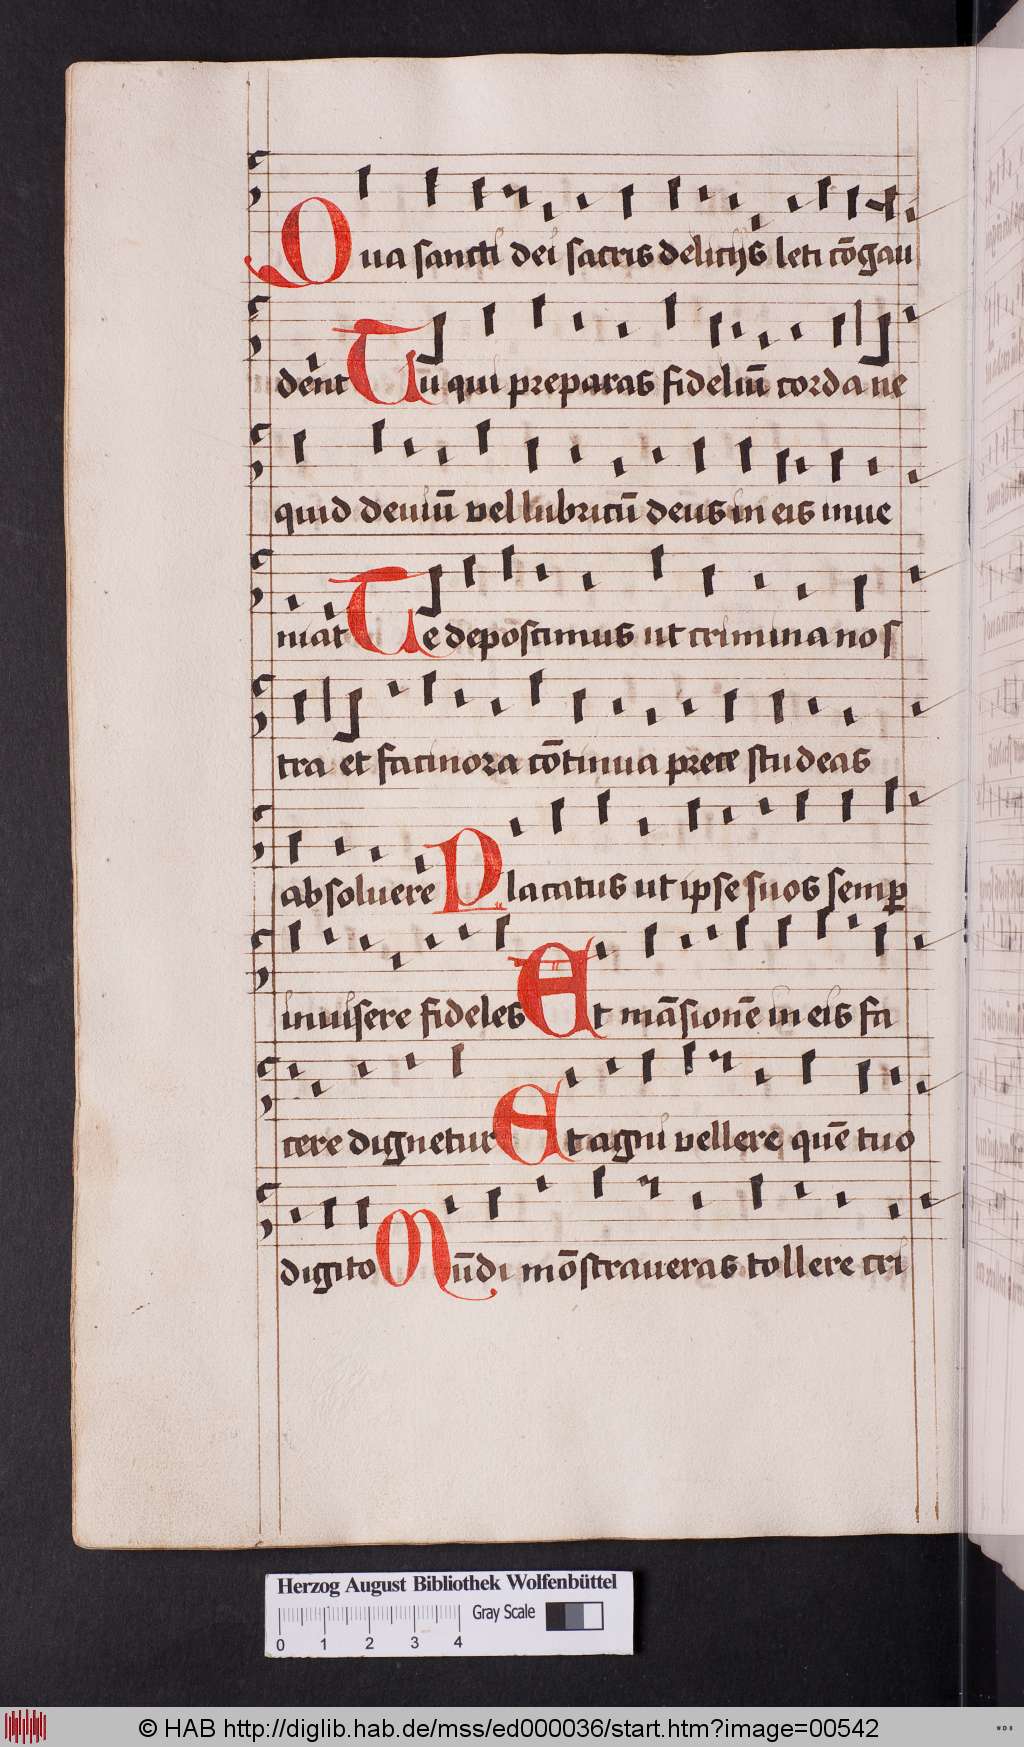 Qua sancti dei sacris delicijs leti cōgau
dent Tu qui preparas fideliū corda ne
quid deuiū vel lubricū deus in eis inue
niat Te deposcimus ut crimina nos
tra et facinora cōtinua prece studeas
absoluere Placatus ut ipse suos semꝑ
inuisere fideles Et māsionē in eis fa
cere dignetur Et agni vellere quē tuo
digito Mūdi mōstraueras tollere cri
Herzog August Bibliothek Wolfenbüttel
Gray Scale
0 1 2 3 4
© HAB http://diglib.hab.de/mss/ed000036/start.htm?image=00542